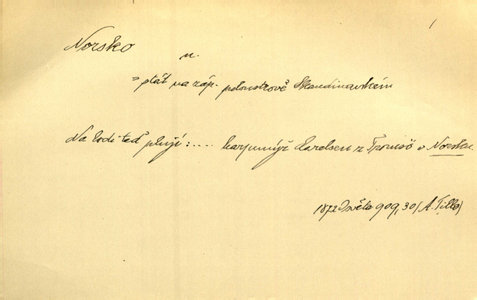 Norsko
n.
stát na záp. poloostrově Skandinavském
Na lodi teď plují: .... harpunýř Carlsen z Tromsö v Norsku.
1872 Světo 909, 30 (A. Tille)